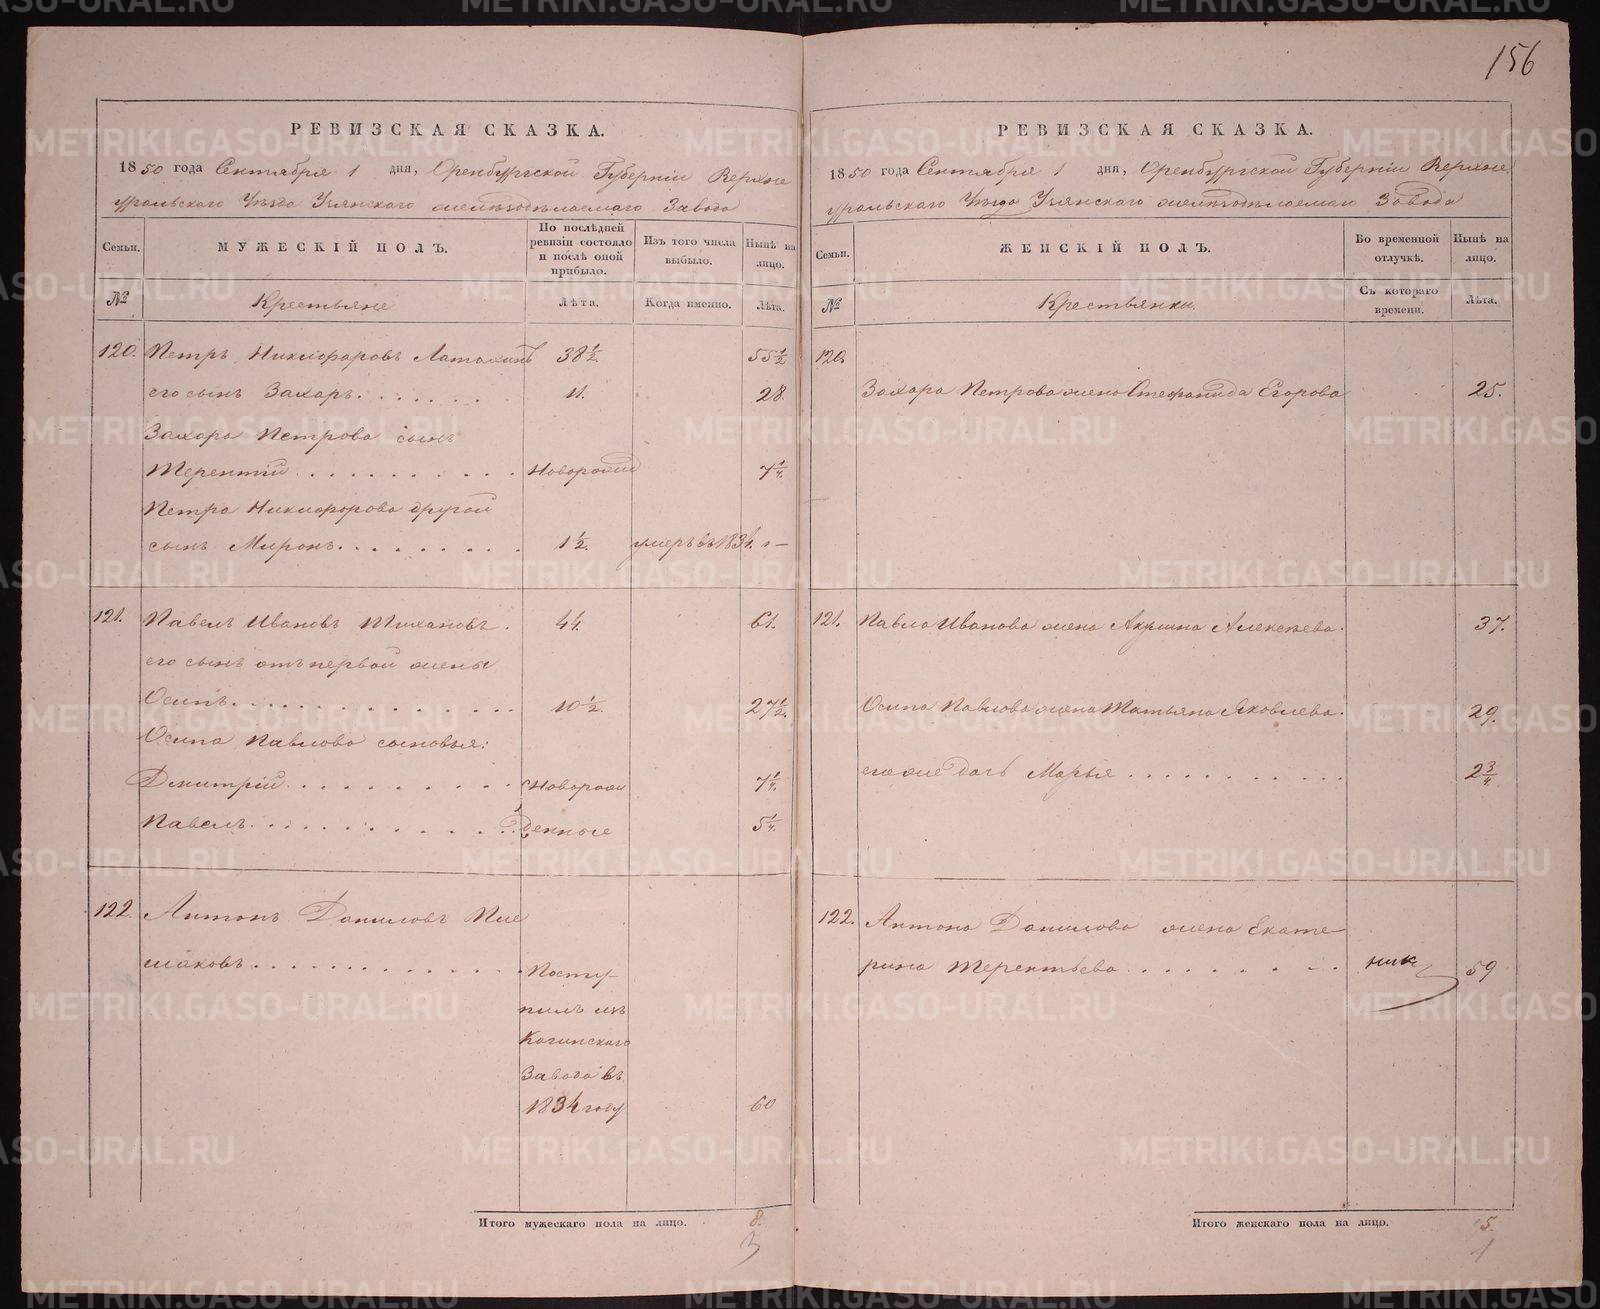 156
РЕВИЗСКАЯ СКАЗКА.
1850 года Сентября 1 дня, Оренбургской Губернии Верхне
уральскаго Уѣзда Узянскаго желѣзодѣлаемаго Завода
Семьи.
МУЖЕСКІЙ ПОЛЪ.
По послѣдней ревизіи состояло и послѣ оной прибыло.
Изъ того числа выбыло.
Нынѣ на лицо.
№
Крестьяне
Лѣта.
Когда именно.
Лѣта.
120. Петръ Никифоровъ Латохинъ 38½ 55½
его сынъ Захаръ. 11. 28.
Захара Петрова сынъ
Терентій Новорожд 7¼
Петра Никифорова другой
сынъ Миронъ. 1½. умеръ въ 1834. —
121. Павелъ Ивановъ Тихановъ. 44. 61.
его сынъ отъ первой жены
Осипъ. 10½. 27½.
Осипа Павлова сыновья:
Дмитрій. Новорож 7¼.
Павелъ. денные 5¼
122. Антонъ Даниловъ
шаковъ. Посту
пилъ изъ
Кагинскаго
Завода въ
1834 году 60
Итого мужескаго пола на лицо. 8.
3
РЕВИЗСКАЯ СКАЗКА.
1850 года Сентября 1 дня, Оренбургской Губерніи Верхне
уральскаго Уѣзда Узянскаго желѣзодѣлаемаго Завода
Семьи.
ЖЕНСКІЙ ПОЛЪ.
Во временной отлучкѣ.
Нынѣ на лицо.
№
Крестьянки.
Съ котораго времени.
Лѣта.
120.
Захара Петрова жена Стефанида Егорова 25.
121. Павла Иванова жена Акулина Алексѣева. 37.
Осипа Павлова жена Татьяна Яковлева. 29.
его же дочь Марья 2¾
122. Антона Данилова жена Екате-
рина Терентьева. 59
Итого женскаго пола на лицо. 5.
1
METRIKI.GASO-URAL.RU